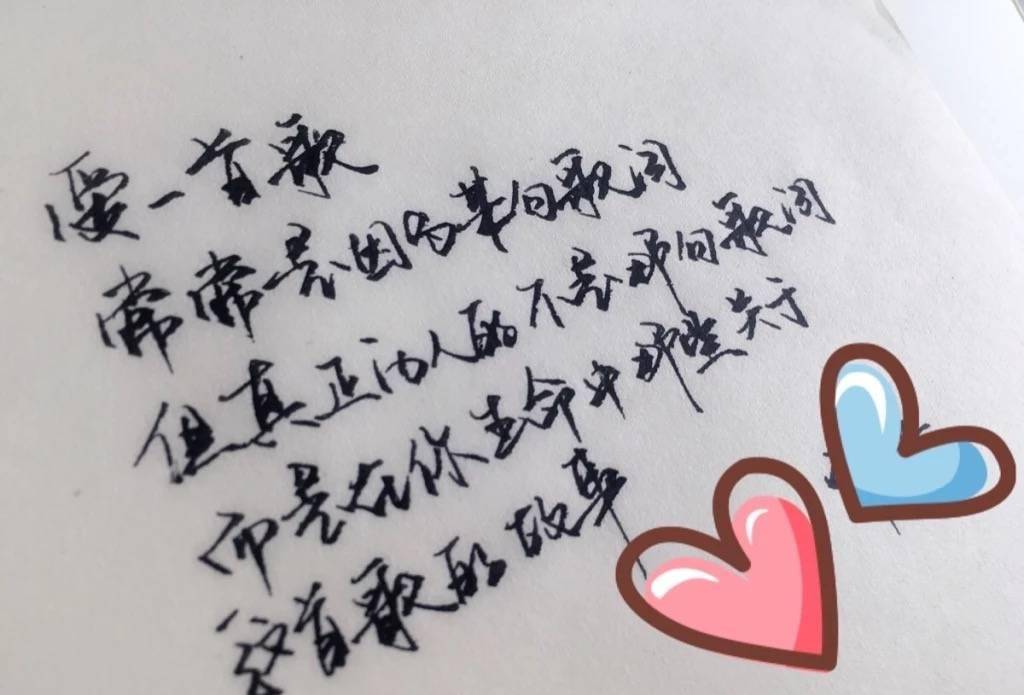 爱一首歌
常常是因为某句歌词
但真正治人的不是那句歌词
而是在你生命中那些关于
这首歌的故事